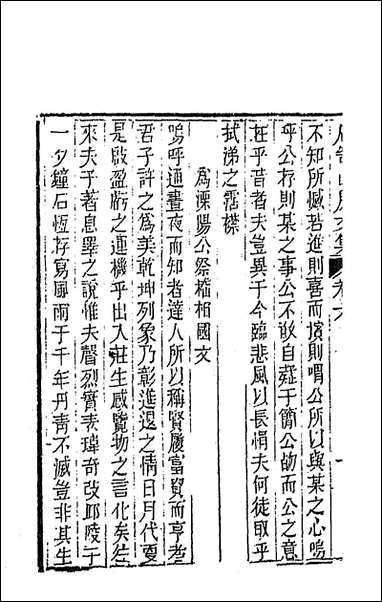 不知所憾若進則喜而擯則喟公所以與某之心嗚
乎公存則某之事公不敢自疑于簡公劬而公之意
在乎昔者夫豈異于今臨悲風以長悁夫何徒取乎
拭涕之霑襟
爲溧陽公祭檇相國文
嗚呼通晝夜而知者達人所以稱賢履富貿而亨者
君子許之爲美乾坤列象乃彰進退之情日月代夏
是啟盈虧之運機乎出入莊生感覽物之言化矣
來夫子著息繹之說惟夫聲烈實素瑋奇改邱陵于
一夕鐘石恆存寫風雨于千年丹靑不滅豈非其生